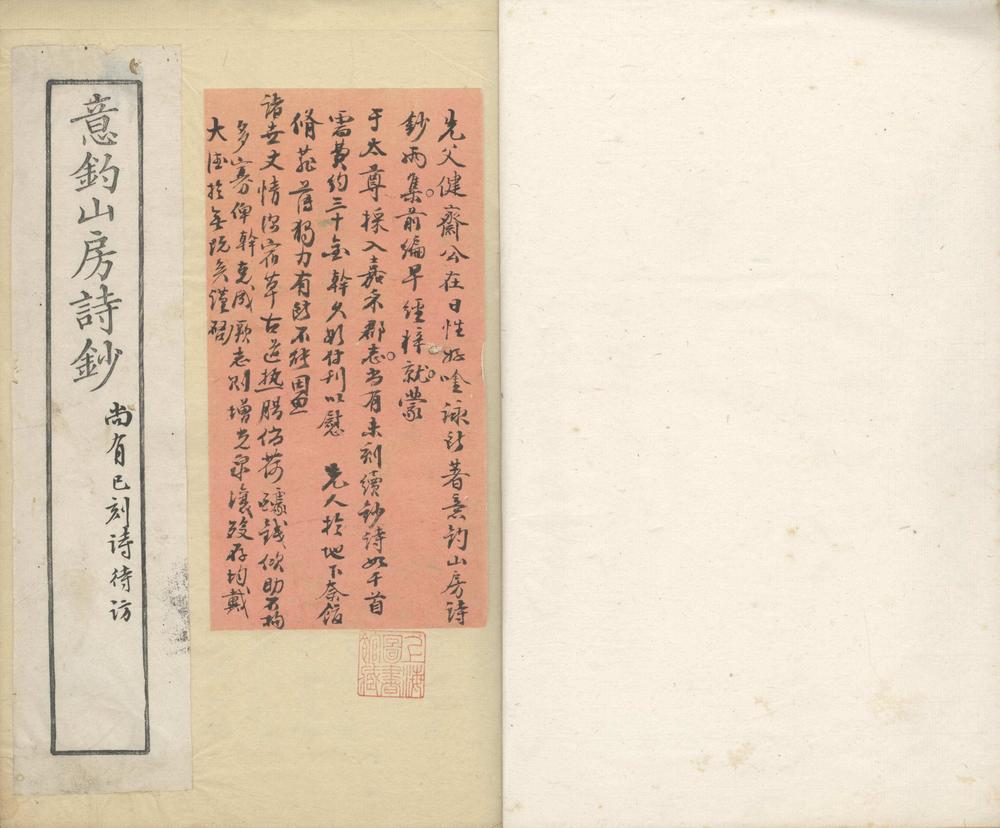 先父健齋公在日性好吟詠所著意釣山房詩
鈔兩集前編早經梓就蒙
于太尊採入嘉禾郡志尚有未刻續鈔詩如干首
需費約三十金幹久欲付刊以慰 先人於地下奈館
脩菲薄獨力有所不能因思
諸世丈情深宿草古道熱腸倘荷醵錢佽助不拘
多寡俾幹克成厥志則增光泉壤歿存均戴
大德於無既矣謹啓
上海圖書館藏
意釣山房詩鈔
尚有已刻詩待訪